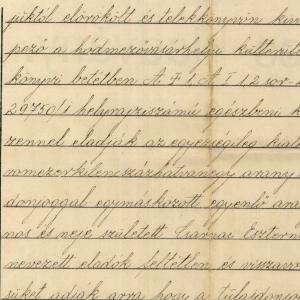 jüktől előrökölt és telekkönyvön kívü
pező a hódmezővásárhelyi külterületi
könyvi betétben A. + 1 A I 1 2 sor-
29750/1 helyrajziszámú egészbeni
zennel eladják az egyezségileg kiala
romezerkilencszázhatvannégy arany
donjoggal egymásközött egyenlő ará
nos és neje született Csárnai Eszterne
nevezett eladók feltétlen és visszavon
süket adják arra, hogy a tulajdonjog